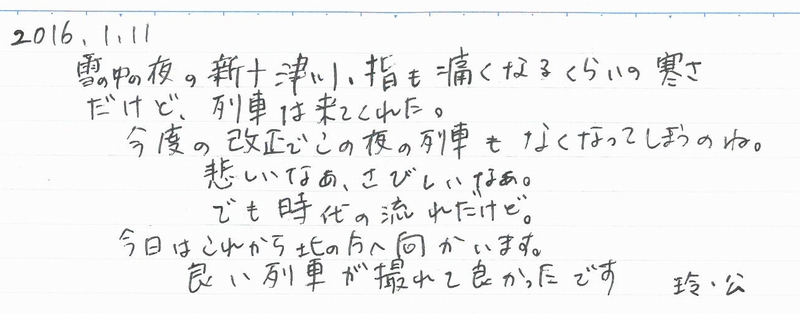 2016.1.11
雪の中の夜の新十津川、指も痛くなるくらいの寒さ
だけど、列車は来てくれた。
今度の改正でこの夜の列車もなくなってしまうのね。
悲しいなぁ、さびしいなぁ。
でも時代の流れだけど。
今日はこれから北の方へ向かいます。
良い列車が撮れて良かったです
玲・公